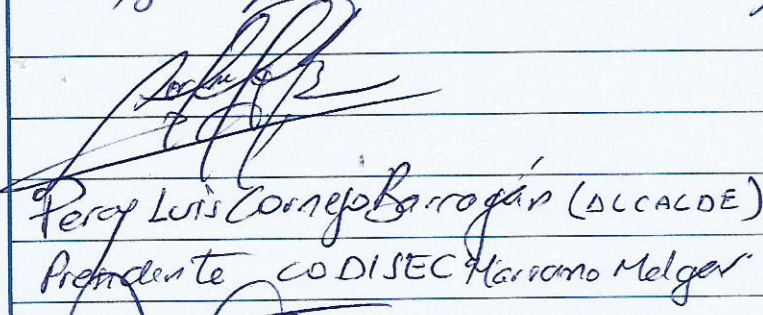 Percy Luis Cornejo Barragán (ALCALDE)
Presidente CODISEC Mariano Melgar